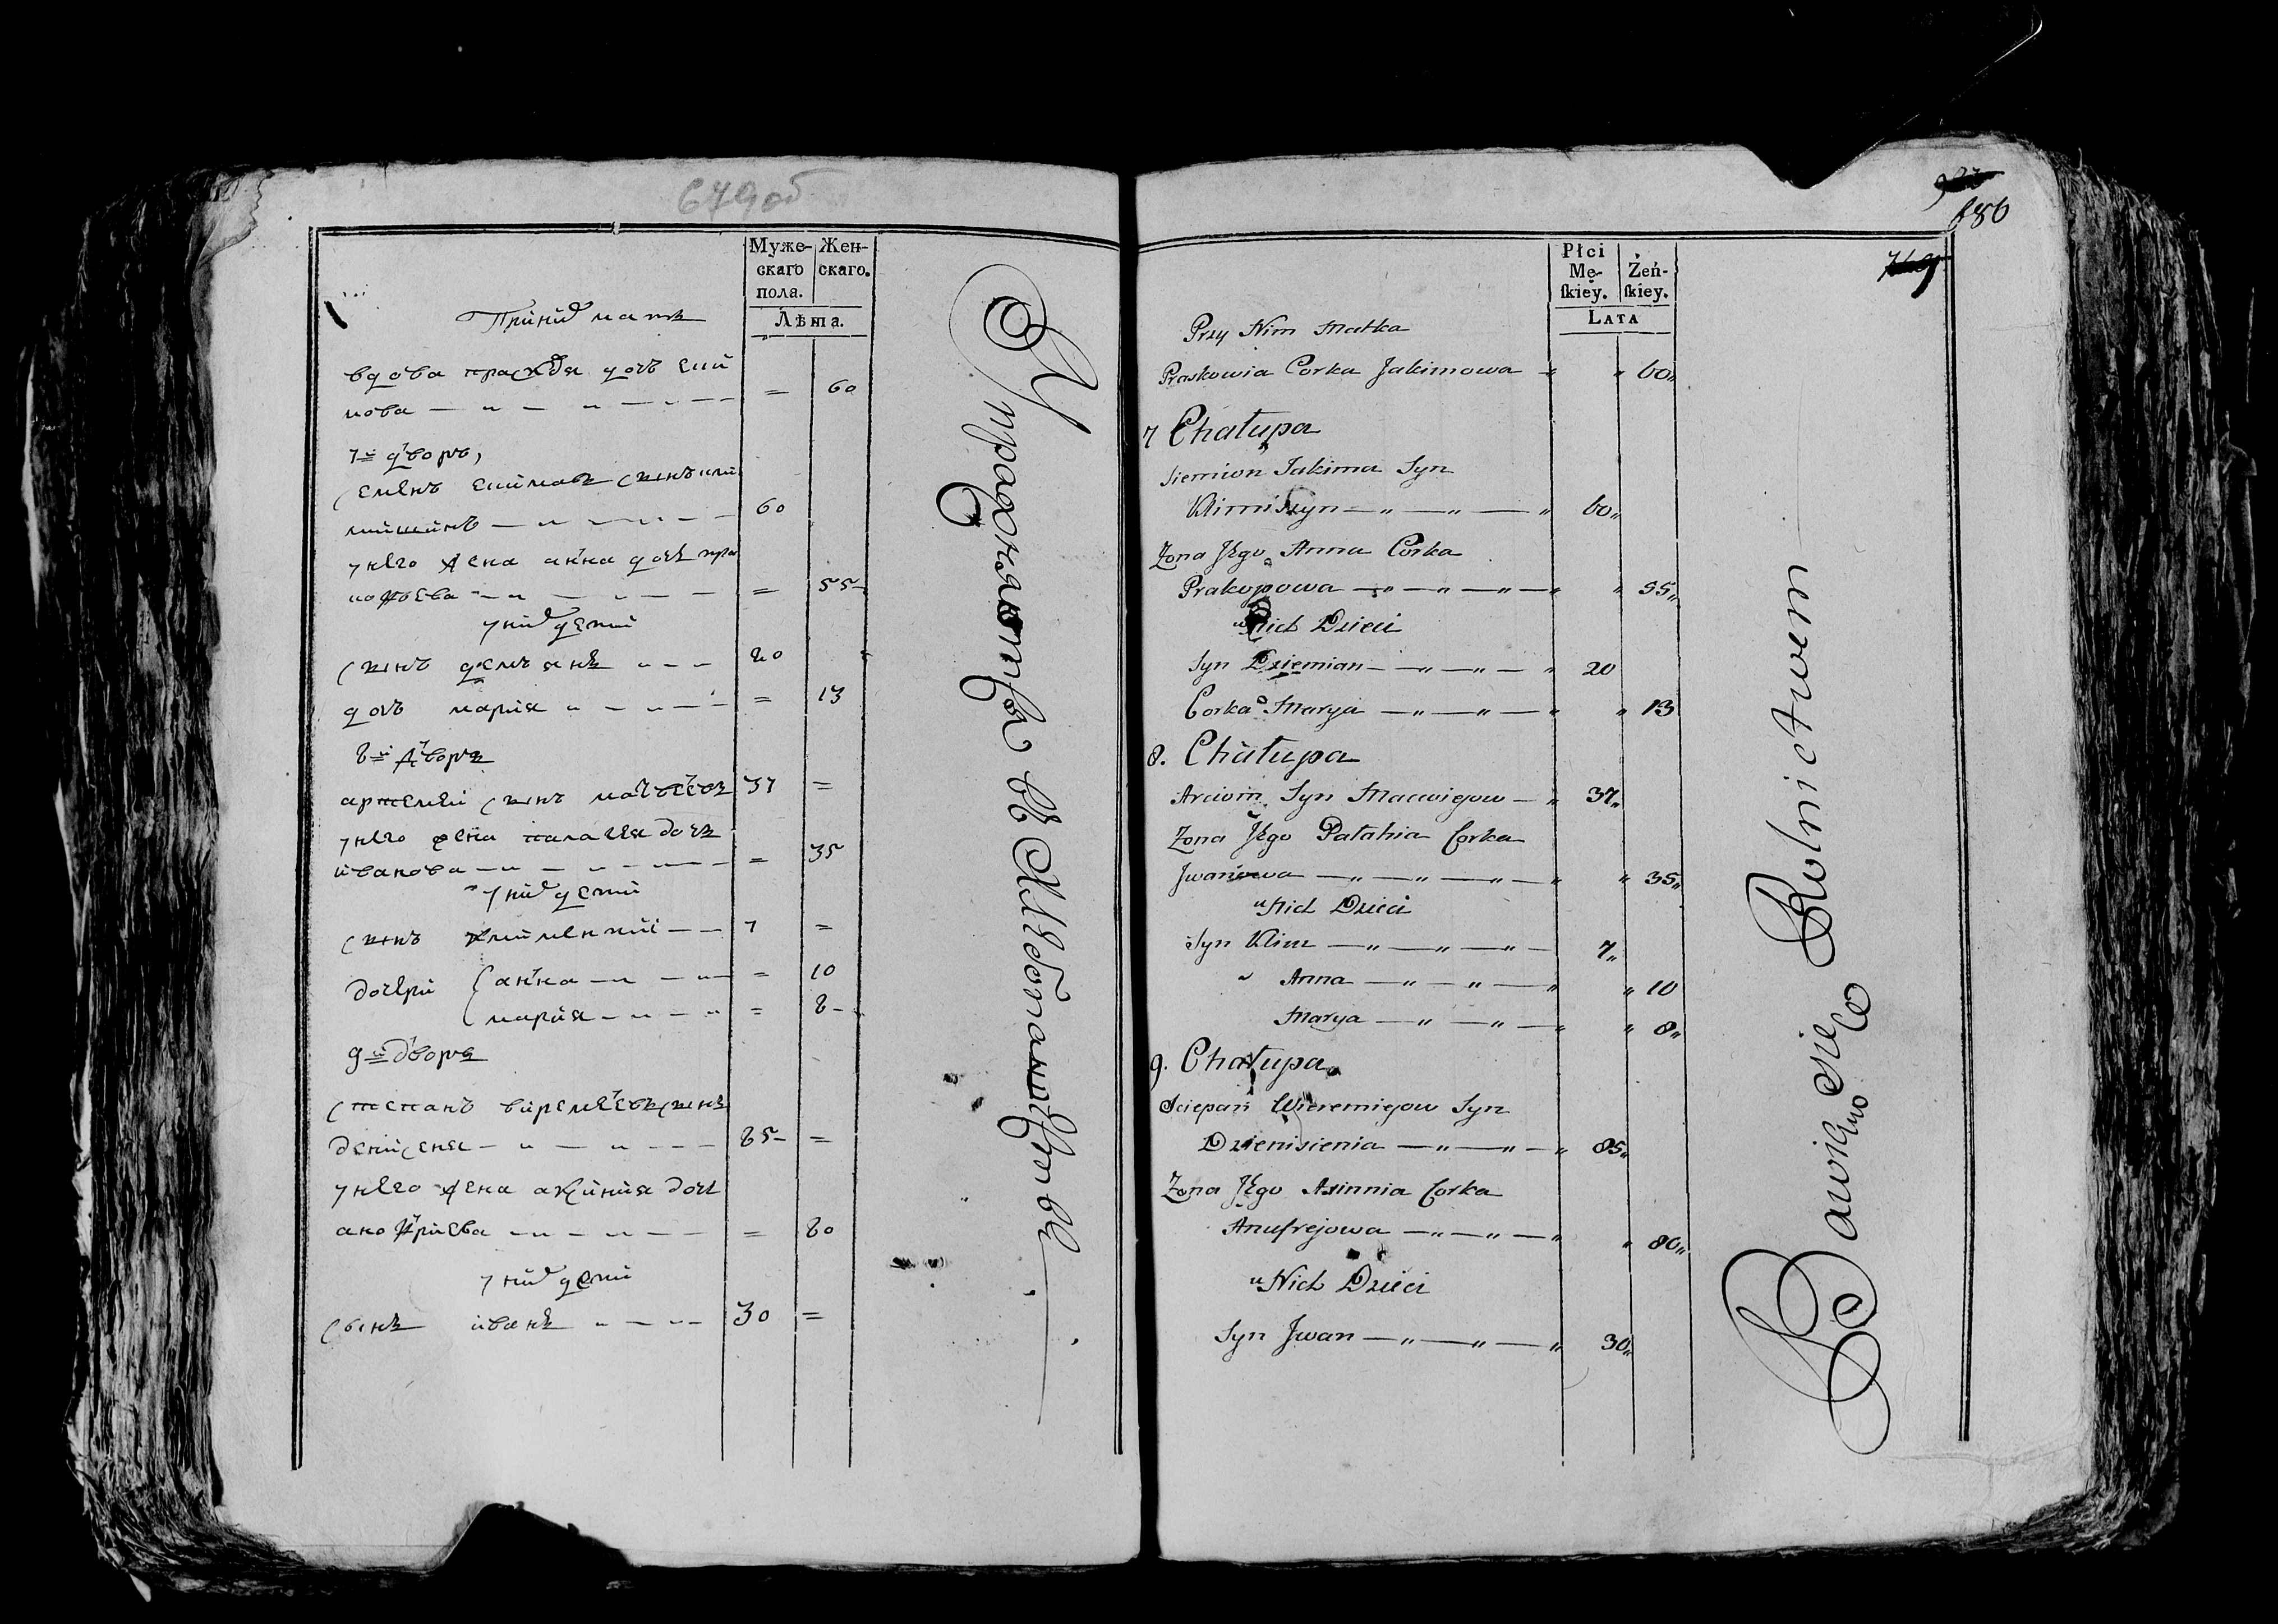 679об
Муже- Жен-
скаго скаго.
пола.
Лѣта.
При ниⷯ мать
вдова праскᲂвя дочь еки
мова — „ — „ — = 60
7й дворъ,
семенъ екимовъ сынъ кли
мишинъ — „ — 60
у него жена анна дочь про
кофьева — „ — = 55
у ниⷯ дети
сынъ демьянъ „ — 20
дочь мария „ — „ — = 13
8й дворъ
артемей сынъ матьвеевъ 37 =
у него жена палагея дочь
иванова — „ — „ — = 35
у ниⷯ дети
сынъ климентий — 7 =
дочери анна — „ — = 10
мария — „ — „ = 8
9й дворъ
степанъ виремеевъ сынъ
денисеня — „ — „ — 85 =
у него жена аксиния дочь
анофриева — „ — „ — = 80
у ниⷯ дети
сынъ иванъ „ — 30 =
Упражняютця въ Хлебопашцтве
680
Płci
Mę- Żeń-
skiey. skiey.
LATA
Przy Nim Matka
Praskowia Corka Jakimowa „ „ 60„
7 Chałupa
Siemion Jakima Syn
Klimiszyn — „ — „ — „ 60„
Zona Jego Anna Corka
Prakopowa — „ — „ — „ — „ „ 55„
u Nich Dzieci
Syn Dziemian — „ — „ — „ 20
Corka Marya — „ — „ — „ „ 13
8. Chałupa
Arciom Syn Macwiejow — „ 37„
Zona Jego Pałahia Corka
Jwanowa — „ — „ — „ — „ „ 35„
u Nich Dzieci
Syn Klim — „ — „ — „ — 7„
„ Anna — „ — „ — „ „ 10
Marya — „ — „ — „ „ 8„
9. Chałupa
Sciepan Wieremiejow Syn
Dzienisienia — „ — „ — „ 85„
Zona Jego Axinnia Corka
Anufrejowa — „ — „ — „ „ 80„
u Nich Dzieci
Syn Jwan — „ — „ — „ 30„
Bawią się Rolnictwem